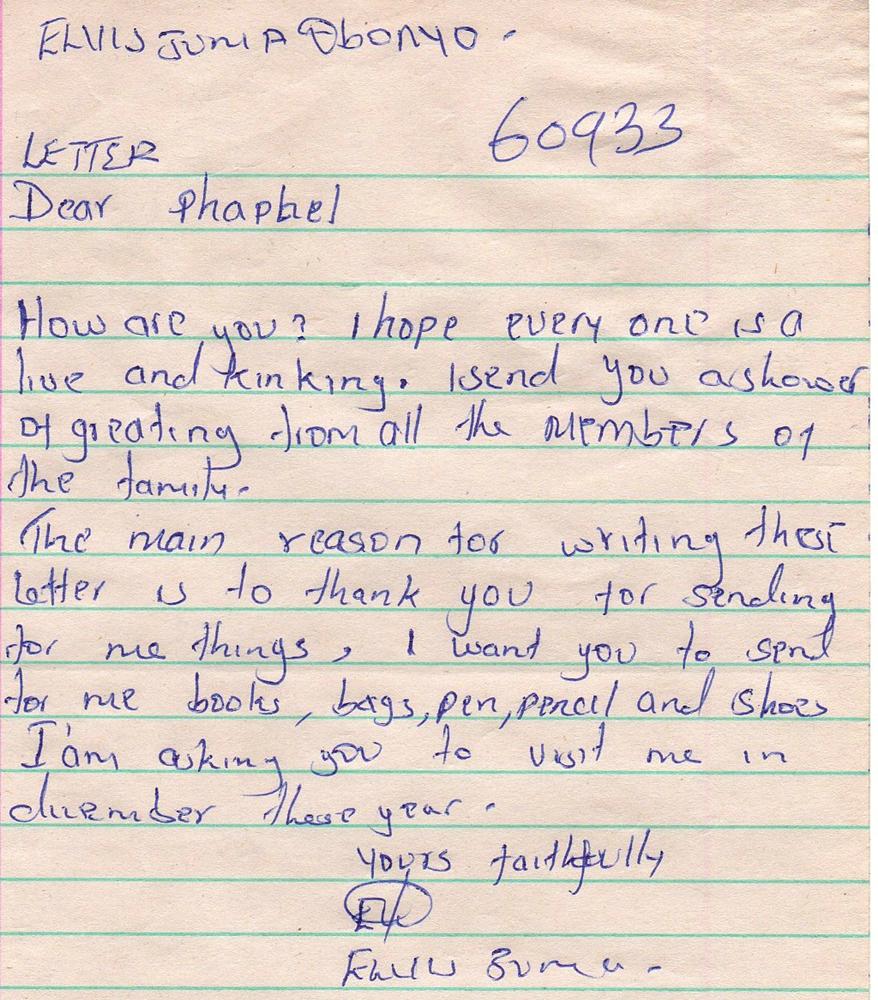 ELVIS JUMA Obonyo.
60933
LETTER
Dear Phaphel
How are you? I hope every one is a
live and kinking. I send you a shower
of greating from all the members of
the family.
The main reason for writing these
letter is to thank you for sending
for me things, I want you to send
for me books, bags, pen, pencil and shoes
I'am asking you to visit me in
december these year.
Yours faithfully
Elvis Juma.